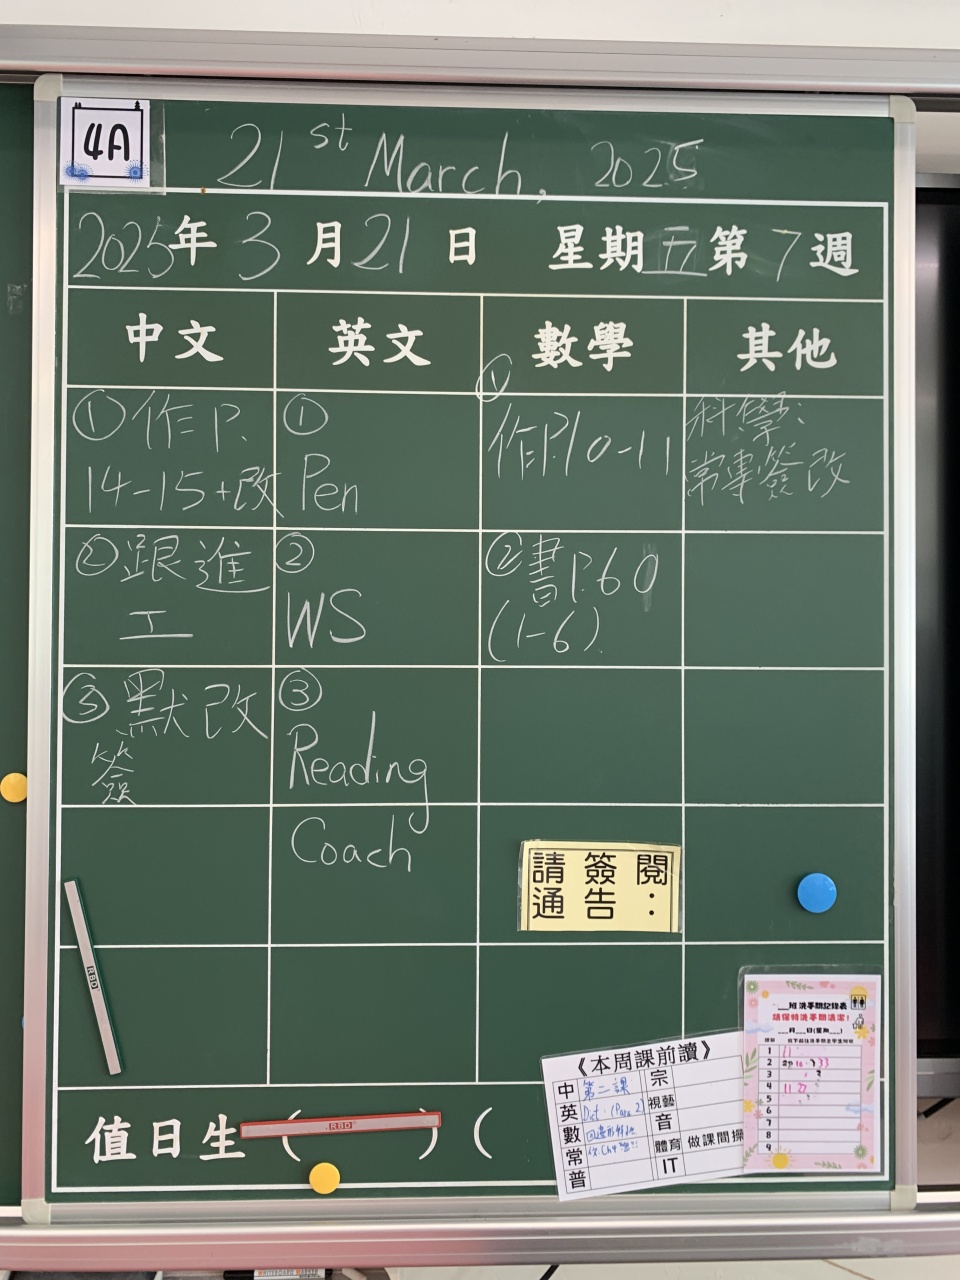 4A
21st March, 2025
2025年3月21日 星期五 第7週
中文 英文 數學 其他
①作P.
14-15+改
②跟進
工
③默改
簽
①
Pen
②
WS
③
Reading
Coach
①
作P.10-11
②書P.60
(1-6)
科學：
常專簽改
請簽閱
通告：
RBD
值日生 ( ) (
RBD
《本周課前讀》
中 第二課
英 Dict. (Para 2)
數
常
普
宗
視藝
音
體育 做課間操
IT
班洗手間記錄表
請保持洗手間清潔！
月 日(星期 )
1 11
2
3
4 11 27
5
6
7
8
9